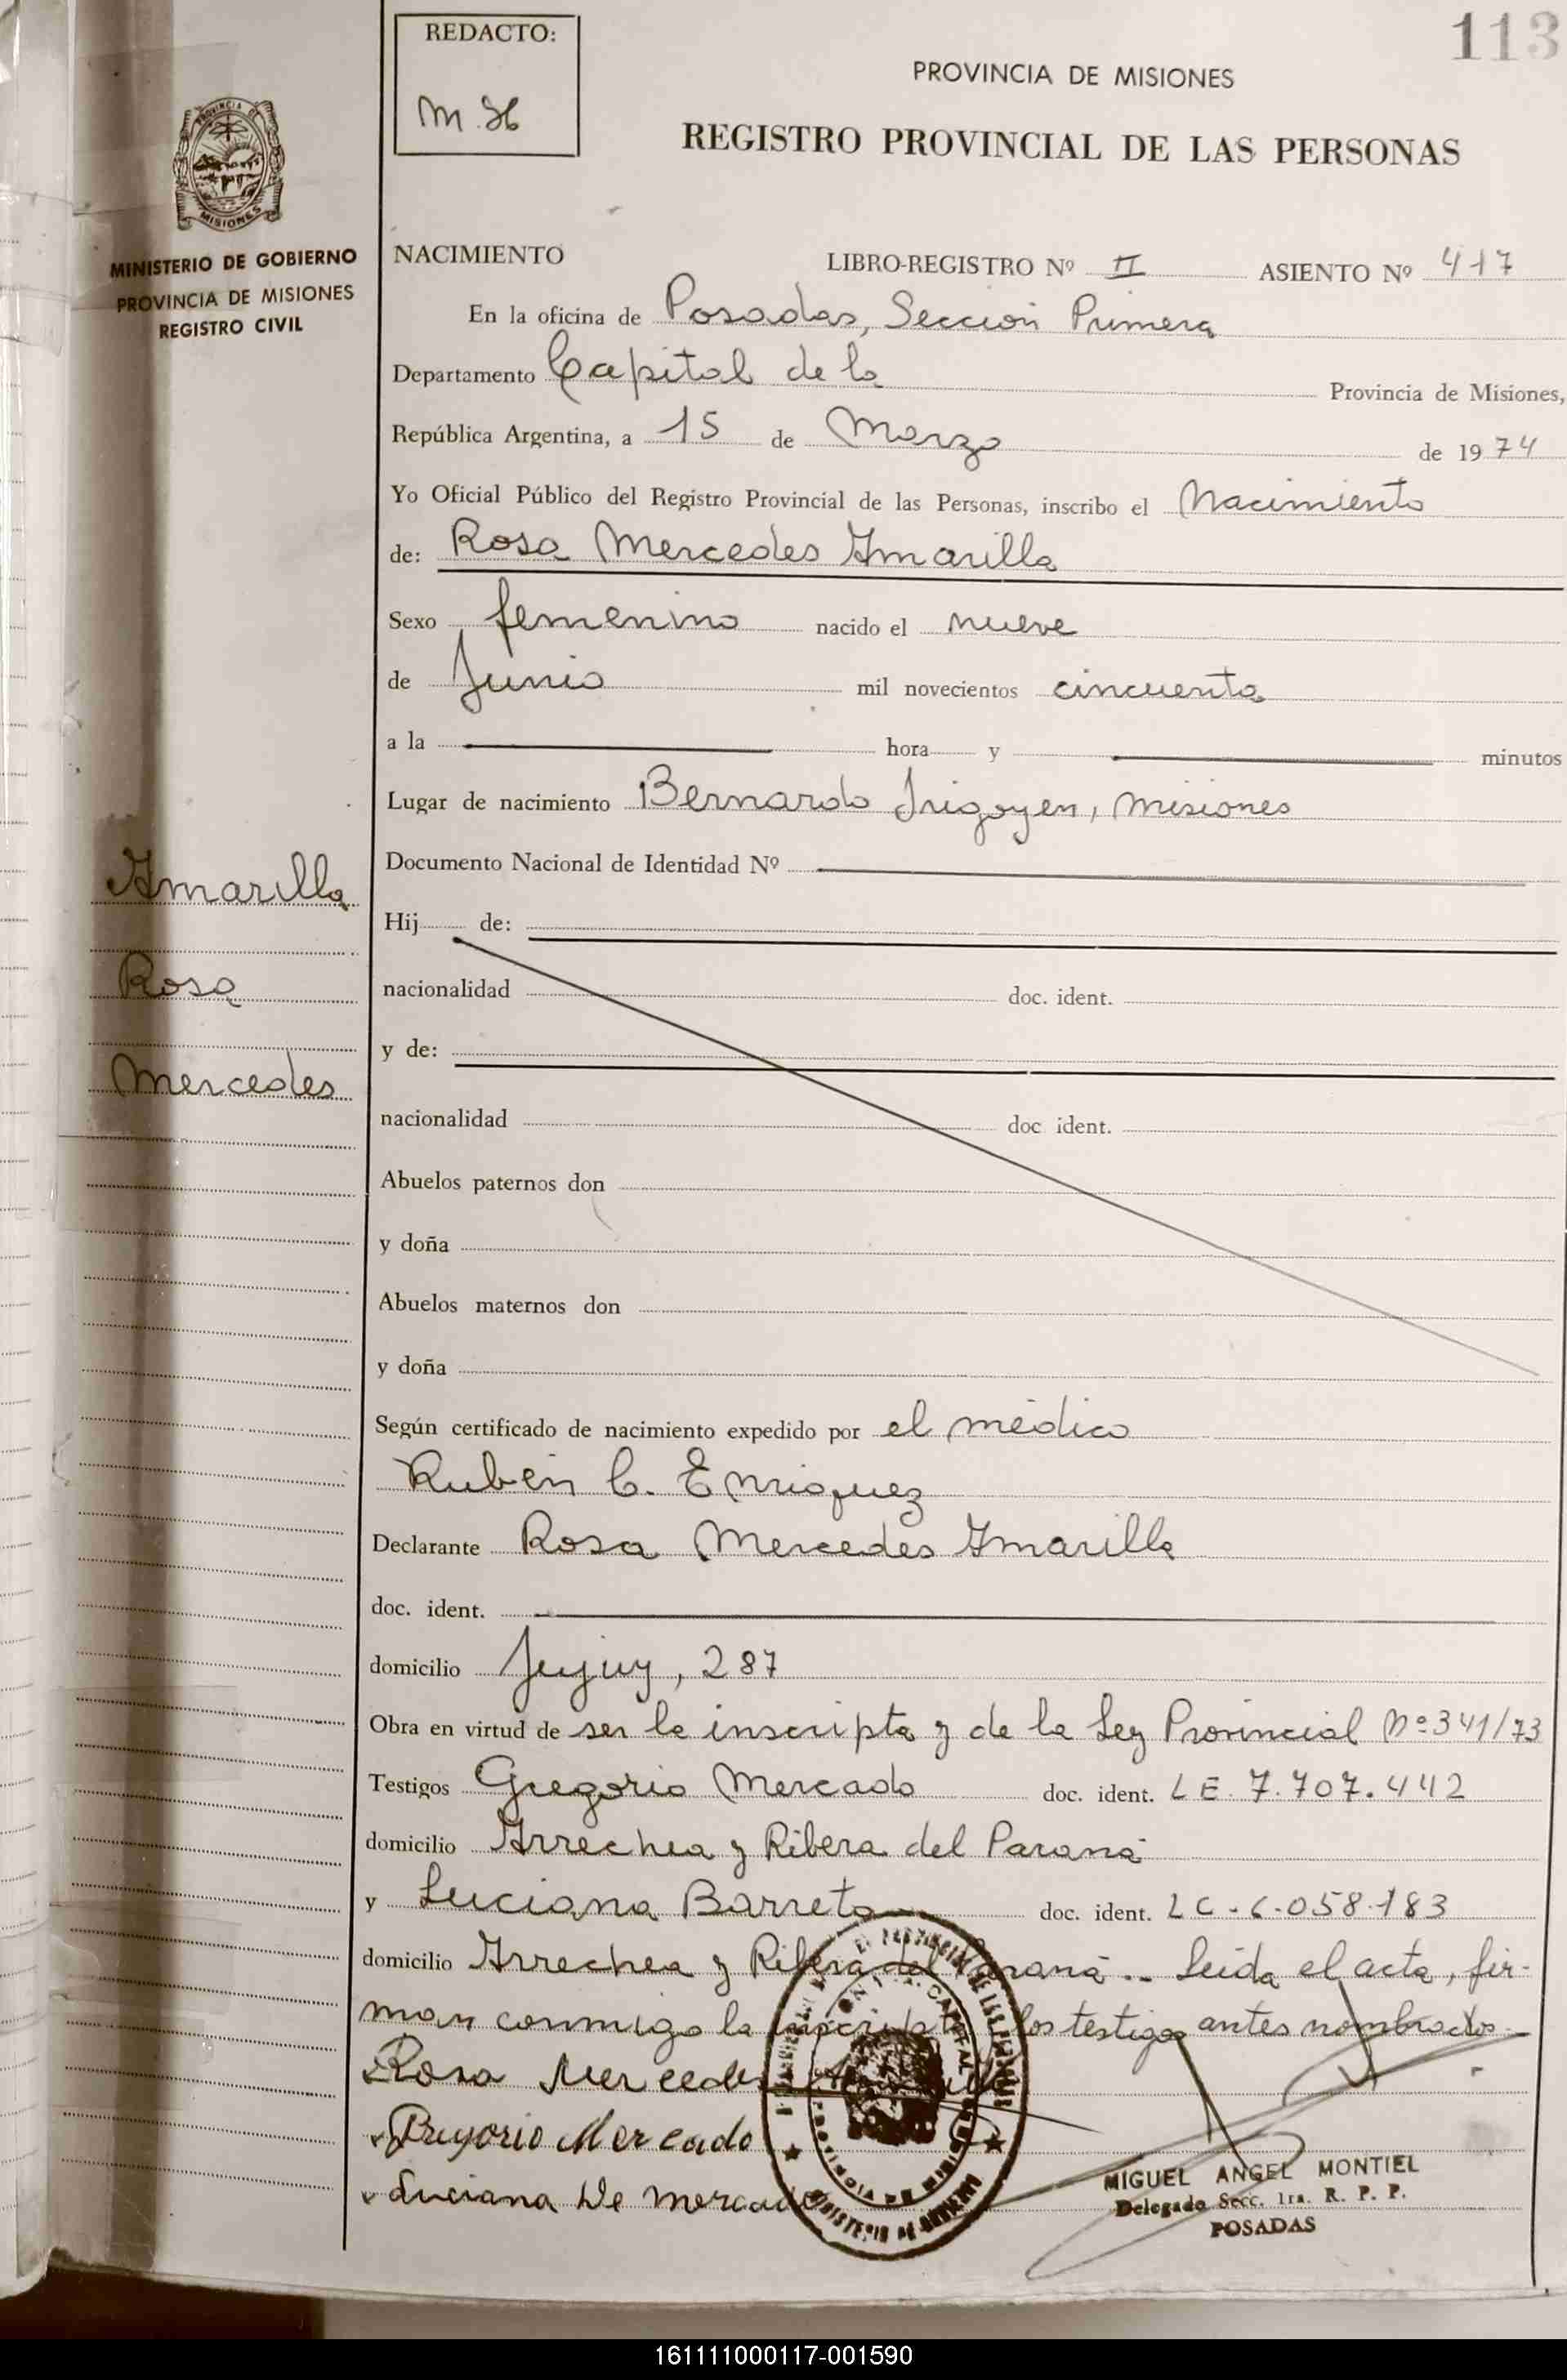 113
REDACTO:
M. H
PROVINCIA DE MISIONES
REGISTRO PROVINCIAL DE LAS PERSONAS
PROVINCIA DE
MISIONES
MINISTERIO DE GOBIERNO
PROVINCIA DE MISIONES
REGISTRO CIVIL
NACIMIENTO LIBRO-REGISTRO Nº II ASIENTO Nº 417
En la oficina de Posadas, Sección Primera
Departamento Capital de la Provincia de Misiones,
República Argentina, a 15 de Marzo de 1974
Yo Oficial Público del Registro Provincial de las Personas, inscribo el Nacimiento
de: Rosa Mercedes Amarilla
Sexo femenino nacido el nueve
de Junio mil novecientos cincuenta
a la hora y minutos
Lugar de nacimiento Bernardo Irigoyen, Misiones
Documento Nacional de Identidad Nº
Amarilla
Hij de:
Rosa
nacionalidad doc. ident.
y de:
Mercedes
nacionalidad doc ident.
Abuelos paternos don
y doña
Abuelos maternos don
y doña
Según certificado de nacimiento expedido por el médico
Rubén C. Enriquez
Declarante Rosa Mercedes Amarilla
doc. ident.
domicilio Jujuy, 287
Obra en virtud de ser la inscripta y de la Ley Provincial Nº 341/73
Testigos Gregorio Mercado doc. ident. LE. 7.707.442
domicilio Arrechea y Ribera del Paraná
y Luciana Barreto doc. ident. LC-6-058-183
domicilio Arrechea y Ribera del Paraná.- Leida el acta, fir-
man conmigo la inscripta y los testigos antes nombrados.-
Rosa Mercedes
Gregorio Mercado
Luciana De Mercado
MIGUEL ANGEL MONTIEL
Delegado Secc. 1ra. R. P. P.
POSADAS
161111000117-001590